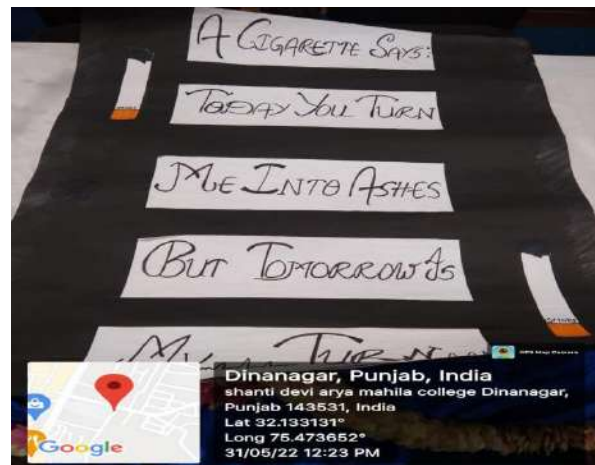 A CIGARETTE SAYS:
TODAY YOU TURN
ME INTO ASHES
BUT TOMORROW IS
MY TURN
GPS Map Camera
Dinanagar, Punjab, India
shanti devi arya mahila college Dinanagar,
Punjab 143531, India
Lat 32.133131°
Long 75.473652°
31/05/22 12:23 PM
Google